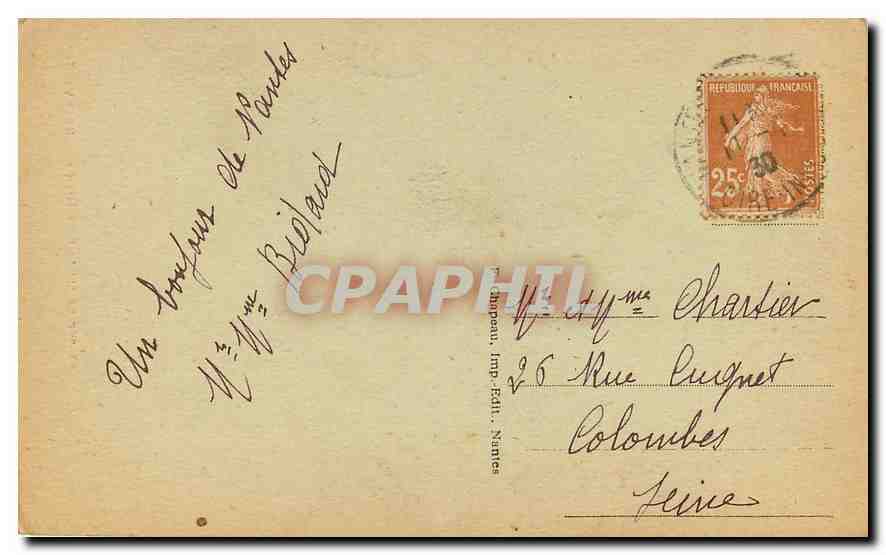 Un bonjour de Nantes
Mr Mme Biolaud
F. Chapeau, Imp.-Edit., Nantes
Mr et Mme Chartier
26 Rue Cugnet
Colombes
Seine
REPUBLIQUE FRANÇAISE
25c
POSTES
30
CPAPHIL